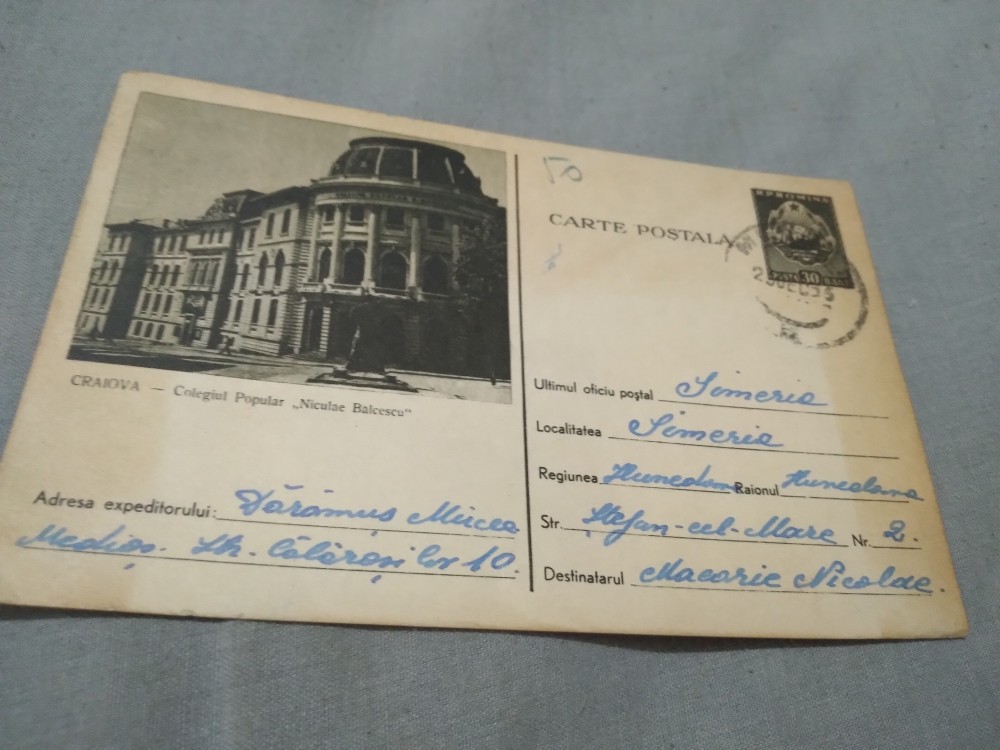 CRAIOVA — Colegiul Popular „Niculae Balcescu"
Adresa expeditorului: Dărămuș Mircea
Mediaș. Str. Călărașilor 10.
50
CARTE POSTALA
R P ROMINA
30
Ultimul oficiu poștal Simeria
Localitatea Simeria
Regiunea Hunedoara Raionul Hunedoara
Str. Ștefan-cel-Mare Nr. 2.
Destinatarul Macarie Nicolae.